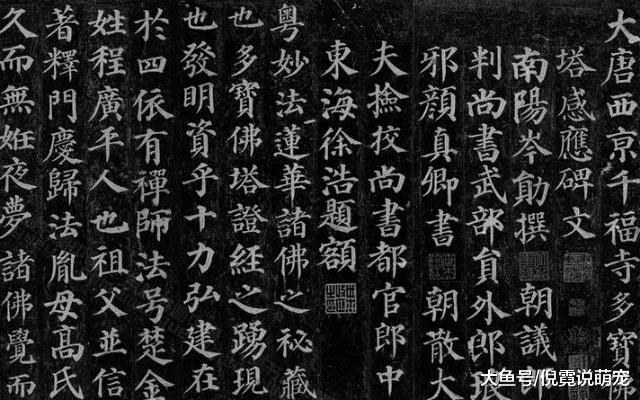 大唐西亰千福寺多寶佛
塔感應碑文
南陽岑勛撰 朝議郎
判尚書武部貟外郎琅
邪顏真卿書 朝散大
夫撿挍尚書都官郎中
東海徐浩題額
粵妙法蓮華諸佛之祕藏
也多寶佛塔證經之踴現
也發明資乎十力弘建在
於四依有禪師法号楚金
姓程廣平人也祖父並信
著釋門慶歸法胤母高氏
久而無姙夜夢諸佛覺而
大鱼号/倪霓说萌宠